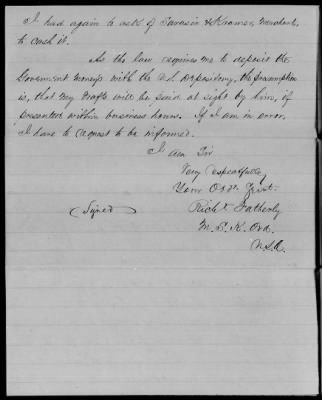 I had again to ask of Tarasin & Kramer, Merchants,
to cash it.
As the law requires me to deposit the
Government moneys with the U.S. Depository, the presumption
is, that my drafts will be paid at sight by him, if
presented within business hours. If I am in error,
I have to request to be informed.
I am Sir
Very respectfully
Your Obt. Servt.
(Signed) Richd. Fatherly
M. S. K. Ord.
U.S.A.